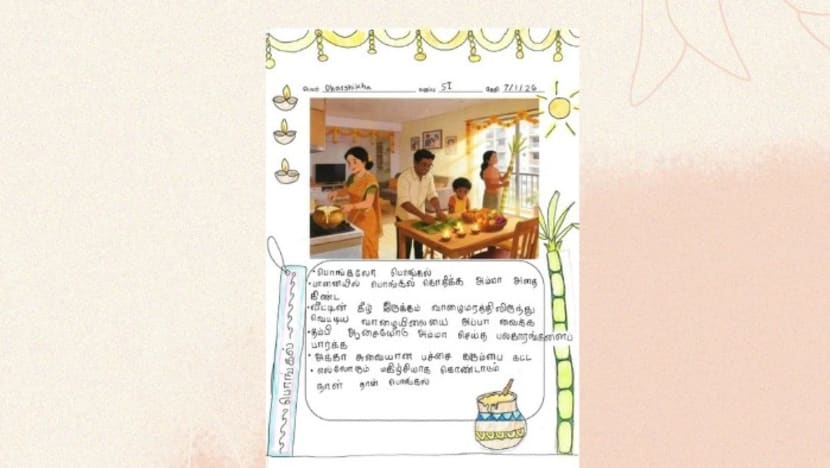 பெயர் Dharshikha வகுப்பு 5I தேதி 7/1/26
• பொங்கலோ பொங்கல்
• பானையில் பொங்கல் கொதிக்க அம்மா அதை
கிண்ட
• வீட்டின் கீழ் இருக்கும் வாழைமரத்திலிருந்து
வெட்டிய வாழையிலையை அப்பா வைக்க
• தம்பி ஆசையோடு அம்மா செய்த பலகாரங்களைப்
பார்க்க
• அக்கா சுவையான பச்சை கரும்பை கட்ட
• எல்லோரும் மகிழ்சியாக கொண்டாடும்
நாள் தான் பொங்கல்
பொங்கல்